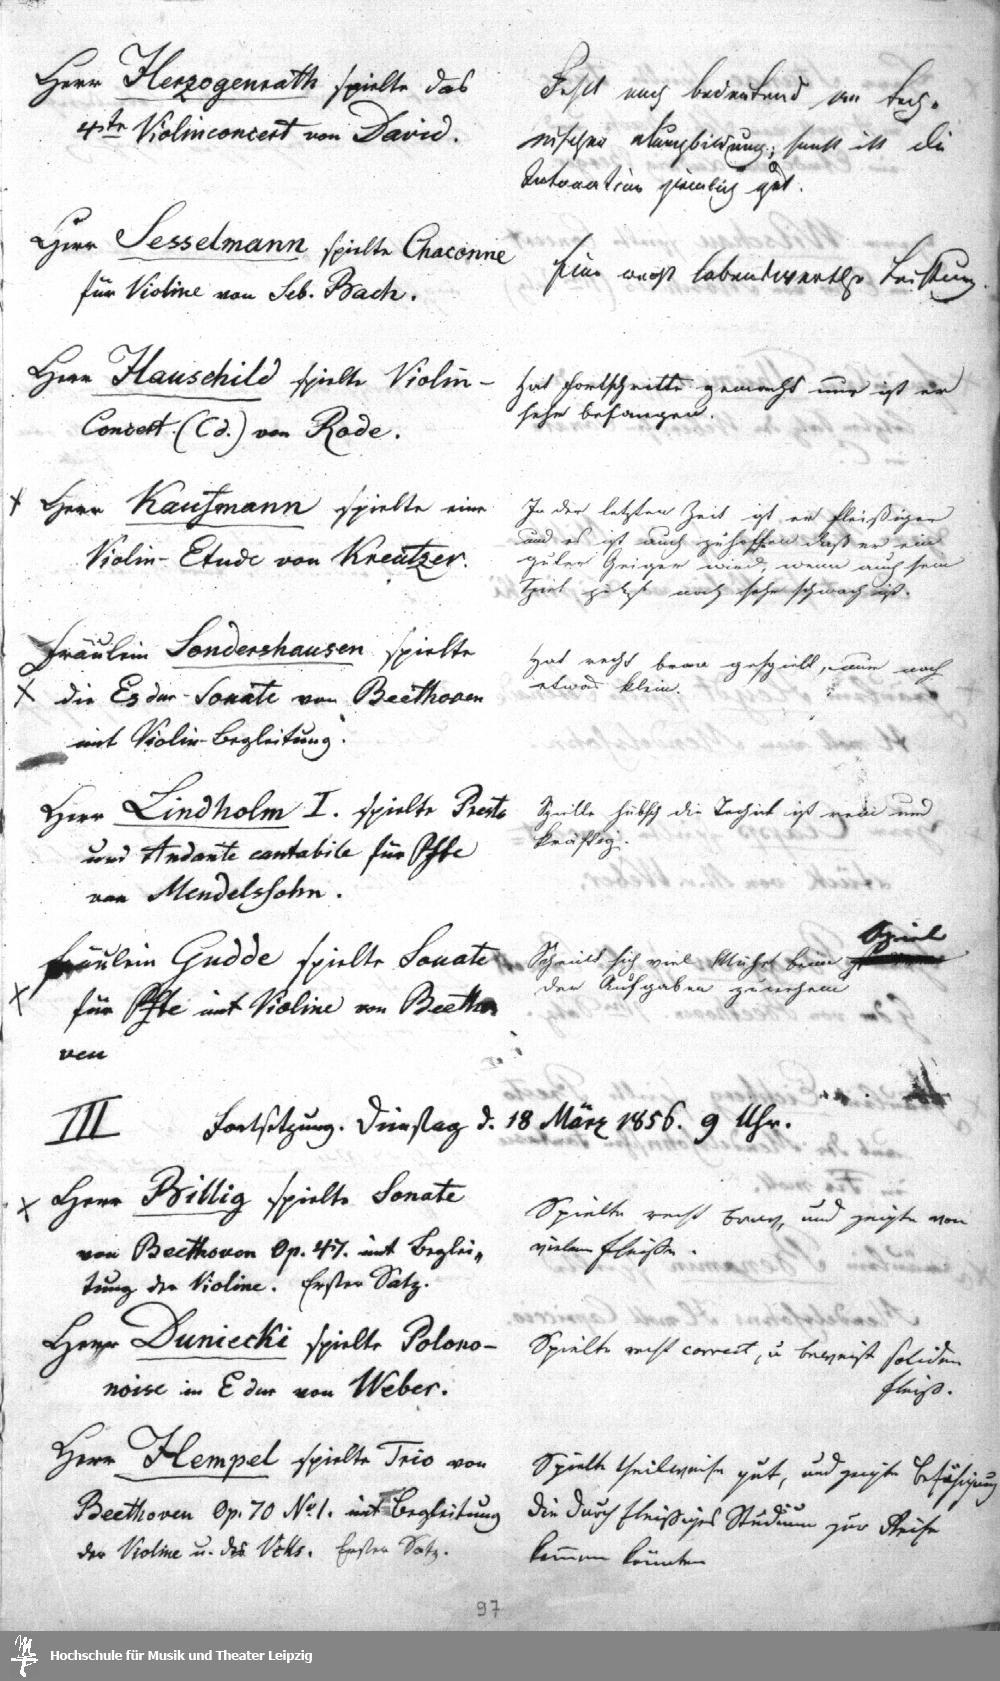 Herr Herzogenrath spielte das
4te Violinconcert von David.
Fehlt noch bedeutend an tech-
nischer Ausbildung; sonst ist die
Intonation ziemlich gut.
Herr Sesselmann spielte Chaconne
für Violine von Seb. Bach.
Eine recht lobenswerthe Leistung.
Herr Hauschild spielte Violin-
Concert. (Cd.) von Rode.
Hat Fortschritte gemacht nur ist er
sehr befangen.
Herr Kaufmann spielte eine
Violin-Etude von Kreutzer.
In der letzten Zeit ist er fleißiger
und es ist auch zu hoffen daß er ein
guter Geiger wird, wenn auch sein
Spiel jetzt noch sehr schwach ist.
Fräulein Sondershausen spielte
die Es dur-Sonate von Beethoven
mit Violin-Begleitung.
Hat recht brav gespielt, nur noch
etwas klein.
Herr Lindholm I. spielte Presto
und Andante cantabile für Pfte
von Mendelssohn.
Spielte hübsch die Technik ist rein und
kräftig.
Fräulein Gudde spielte Sonate
für Pfte mit Violine von Beetho
ven
Scheint sich viel Mühe beim Spiel
der Aufgaben zu nehmen
III Fortsetzung. Dienstag d. 18 März 1856. 9 Uhr.
Herr Billig spielte Sonate
von Beethoven Op. 47. mit Beglei-
tung der Violine. Erster Satz.
Spielte recht brav, und zeigte von
vielem Fleiße.
Herr Duniecki spielte Polono-
noise in E dur von Weber.
Spielte recht correct, u beweist soliden
Fleiß.
Herr Hempel spielte Trio von
Beethoven Op. 70 No 1. mit Begleitung
der Violine u. des Vclls. Erster Satz.
Spielte theilweise gut, und zeigte Befähigung
die durch fleißiges Studium zur Reife
kommen könnten
97
Hochschule für Musik und Theater Leipzig